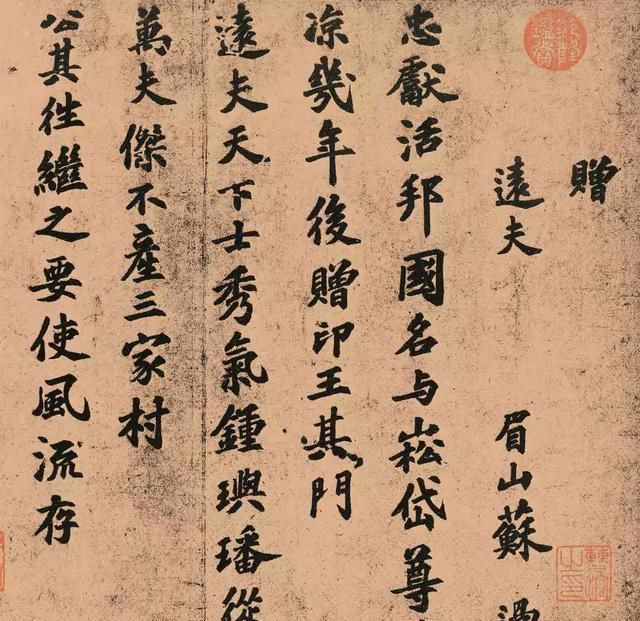 贈
遠夫 眉山蘇
忠獻活邦國名与崧岱尊
凉幾年後贈印王其門
遠夫天下士秀氣鍾璵璠從
萬夫傑不產三家村
公其往繼之要使風流存